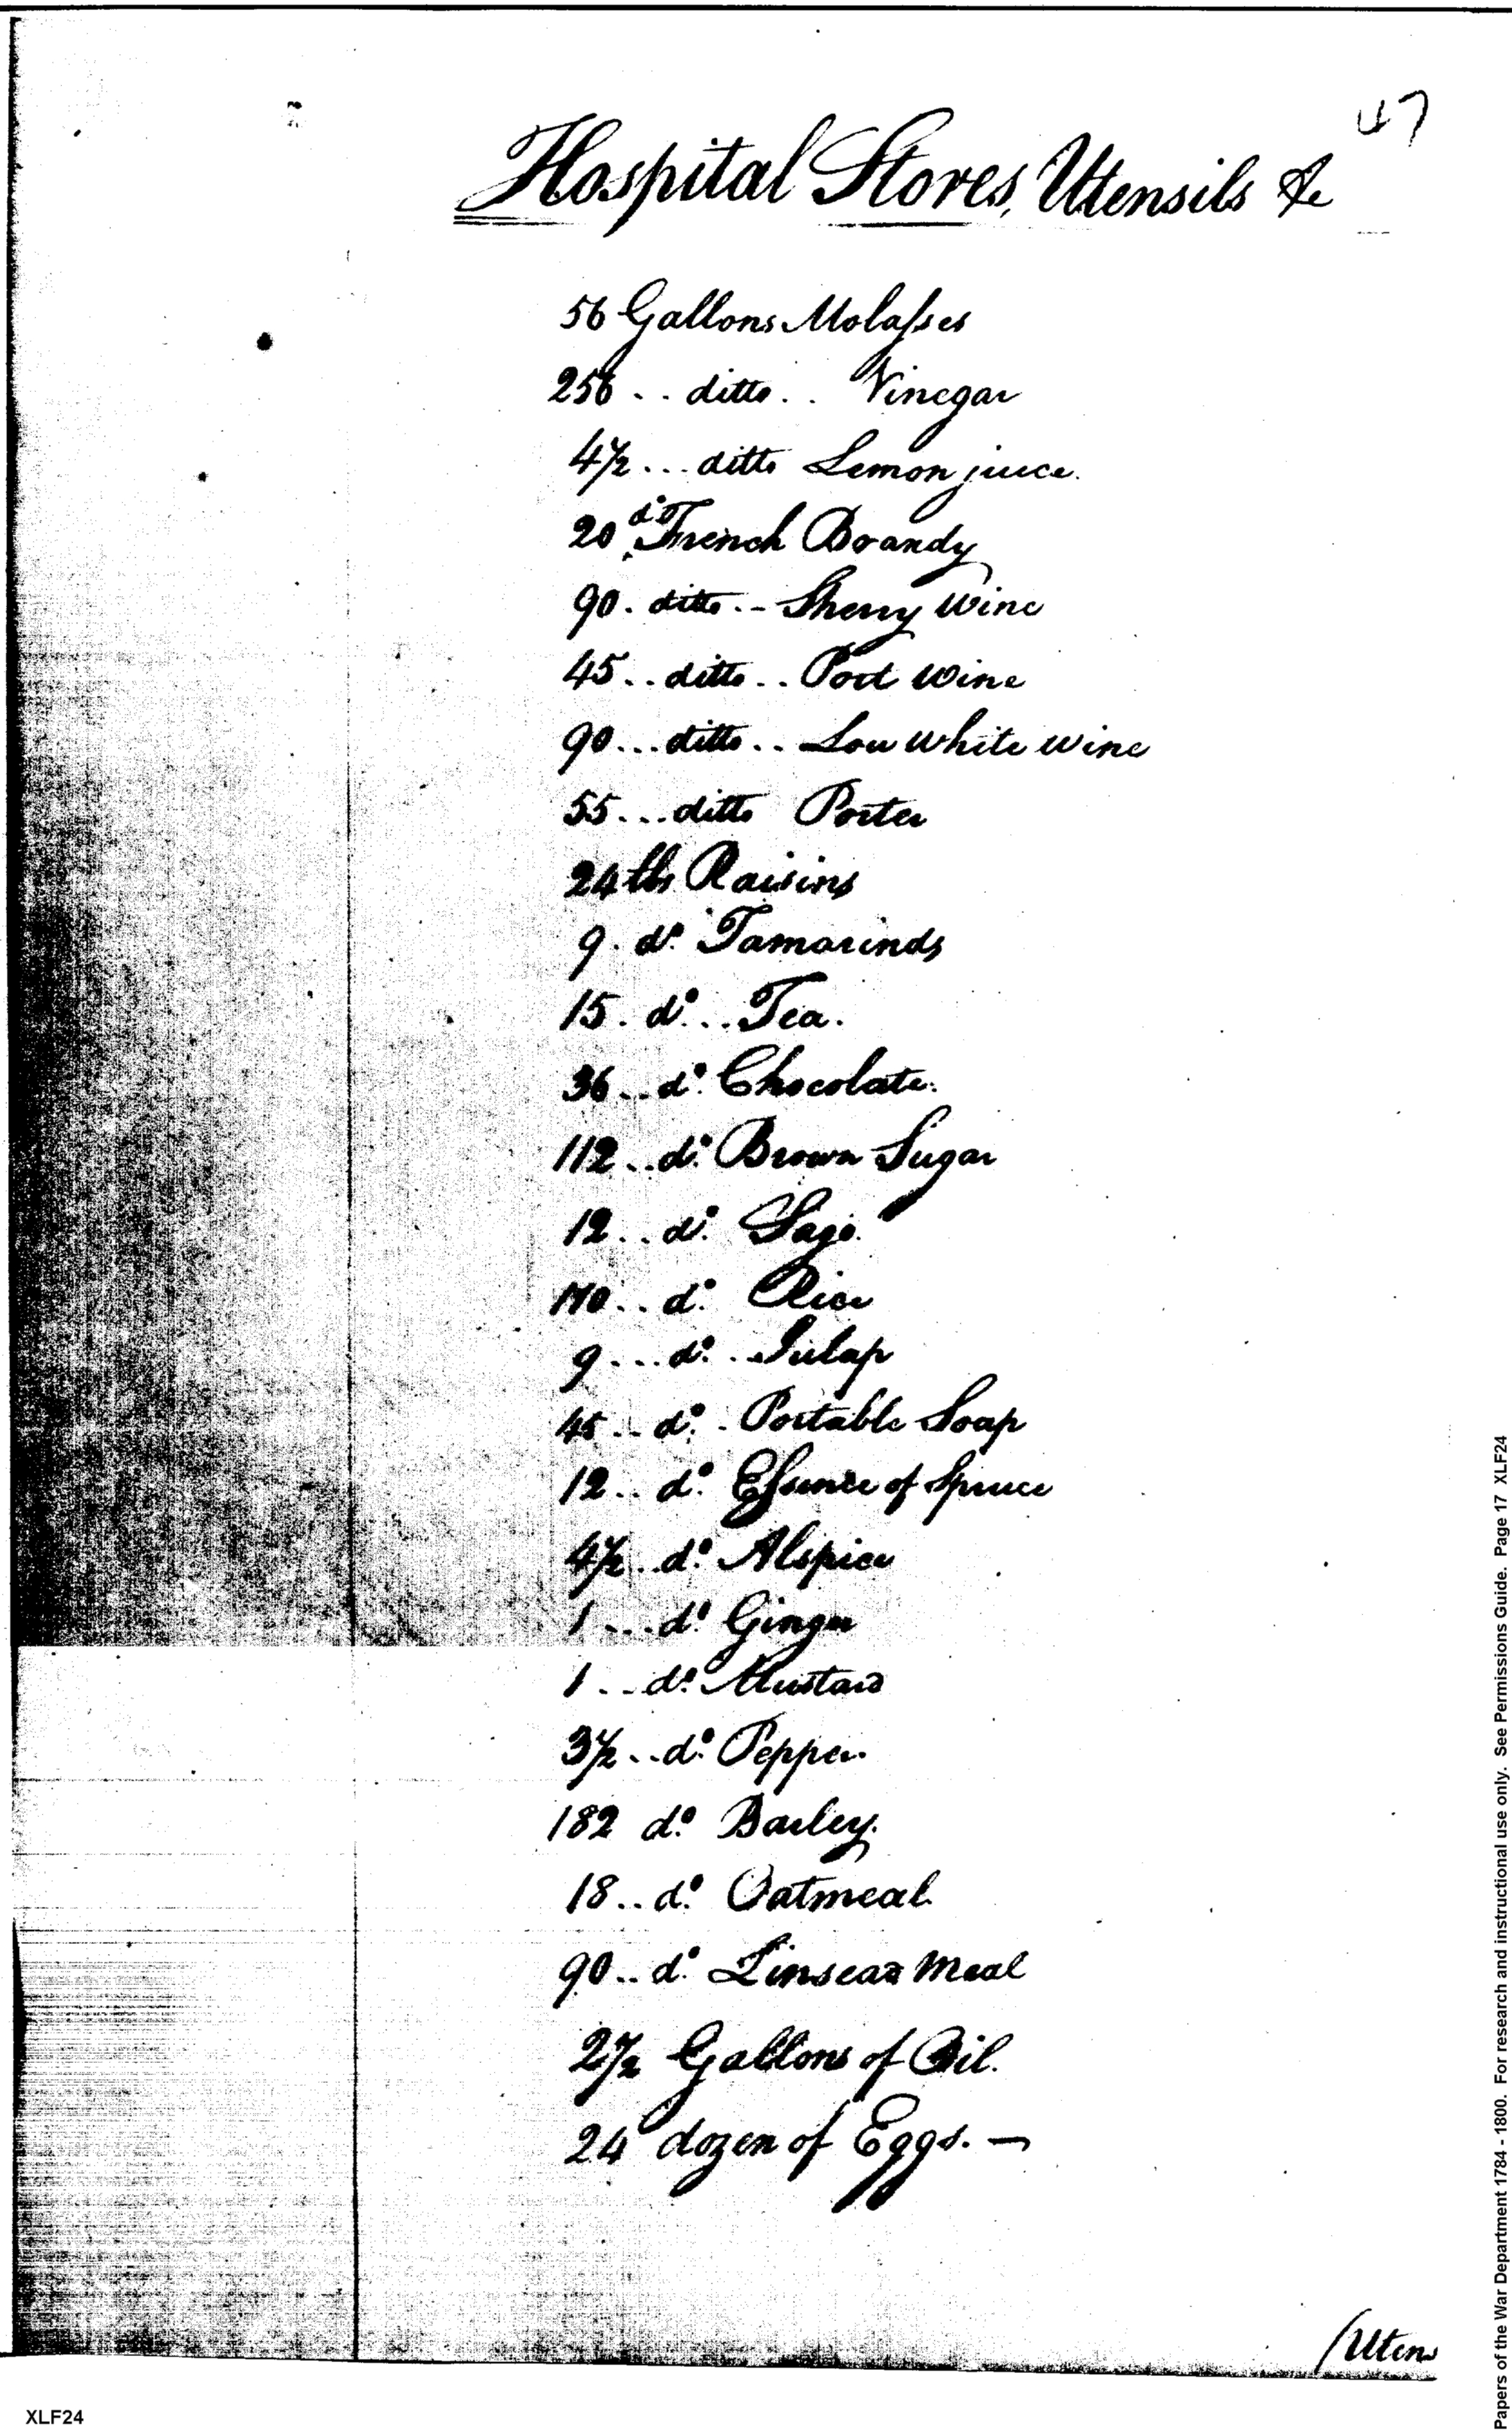 47
Hospital Stores, Utensils &c
56 Gallons Molasses
256 .. ditto .. Vinegar
4½ ... ditto Lemon juice.
20 do French Brandy
90 . ditto .- Sherry Wine
45 .. ditto .. Port Wine
90 ... ditto .. Low white wine
55 ... ditto Porter
24 lbs Raisins
9 . do. Tamarinds
15 . do. .. Tea.
36 .. do. Chocolate.
112 .. do. Brown Sugar
12 .. do. Sago.
170 .. do. Rice
9 ... do. .. Julap
45 .. do. . Portable Soap
12 .. do. Essence of Spruce
4½ .. do. Alspice
1 ... do. Ginger
1 .. do. Mustard
3½ .. do. Pepper.
182 do. Barley.
18 .. do. Oatmeal.
90 .. do. Linsead Meal
2½ Gallons of Oil.
24 dozen of Eggs. —
/Utens
XLF24
Papers of the War Department 1784 - 1800. For research and instructional use only. See Permissions Guide. Page 17 XLF24